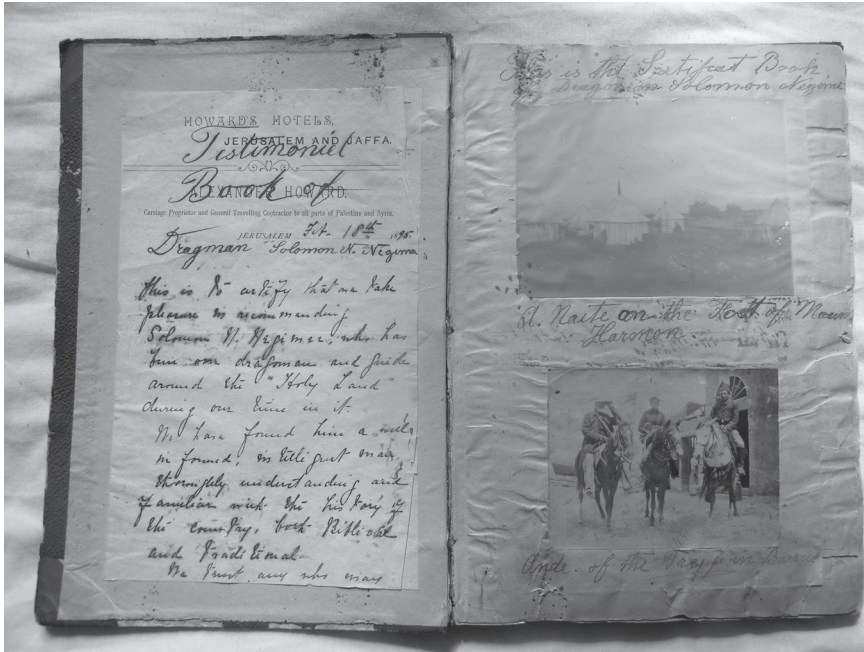 HOWARD'S HOTELS,
JERUSALEM AND JAFFA.
Testimoniel
Book of
ALEXANDER HOWARD,
Carriage Proprietor and General Travelling Contractor to all parts of Palestine and Syria.
JERUSALEM Feb. 18th 1895.
Dragman Solomon N. Negima
This is to certify that we take
pleasure in recommending
Solomon N. Negimer, who has
been our dragoman and guide
around the "Holy Land"
during our time in it.
We have found him a well
in formed, intelligent man,
thoroughly understanding and
familiar with the history of
the country, both Biblical
and traditional.
We trust any who may
This is the Sertifcat Book
of Dragman Solomon Negima
Nt. Naite on the Foot of Moun
Harmon
Ande. of the in